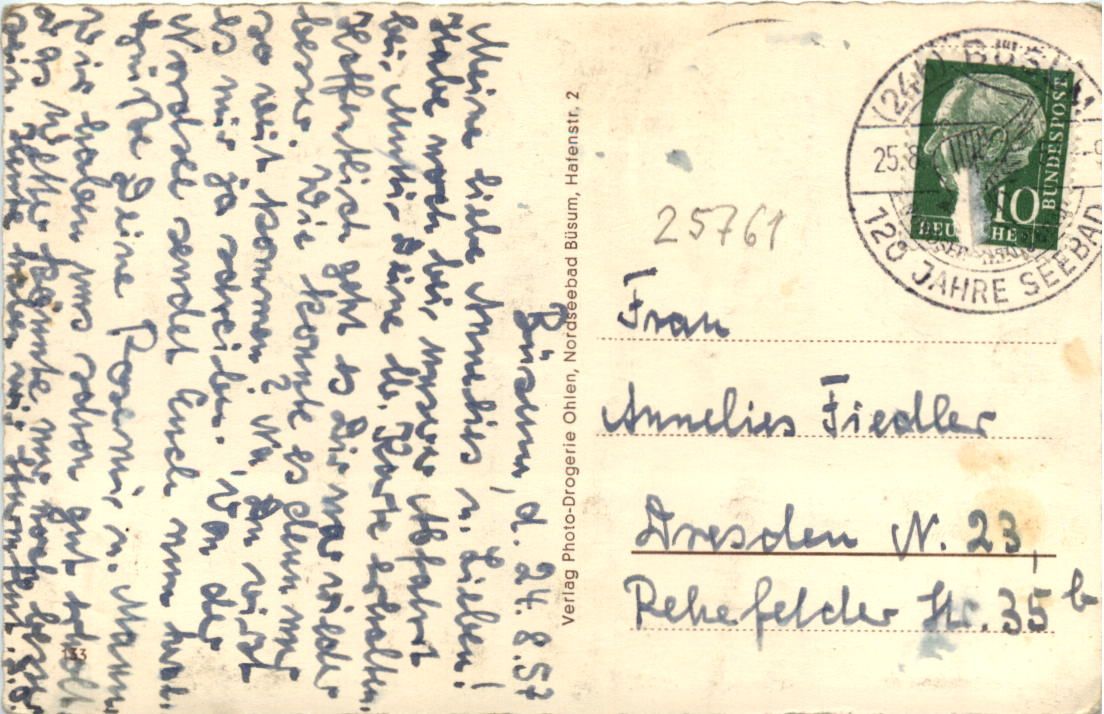 Büsum, d. 24.8.57
Meine liebe Annelies u. Lieben!
Habe noch bei unserer Abfahrt
bei Mutti Deine lb. Karte erhalten.
Hoffentlich geht es Dir mal wieder
besser. Wie konnte es denn nur
so weit kommen? Na, Du wirst
es mir ja schreiben. Von der
Nordsee sendet Euch nun herzl.
Grüße Deine u. Mann
Wir haben uns schon gut erholt
das Wetter könnte nur noch besser
sein. Heute haben wir Sturm
133
Verlag Photo-Drogerie Ohlen, Nordseebad Büsum, Hafenstr. 2
(24b) BÜSUM
25.8.
120 JAHRE SEEBAD
DEUTSCHE
BUNDESPOST
10
25761
Frau
Annelies Fiedler
Dresden N. 23,
Rehefelder Str. 35 b